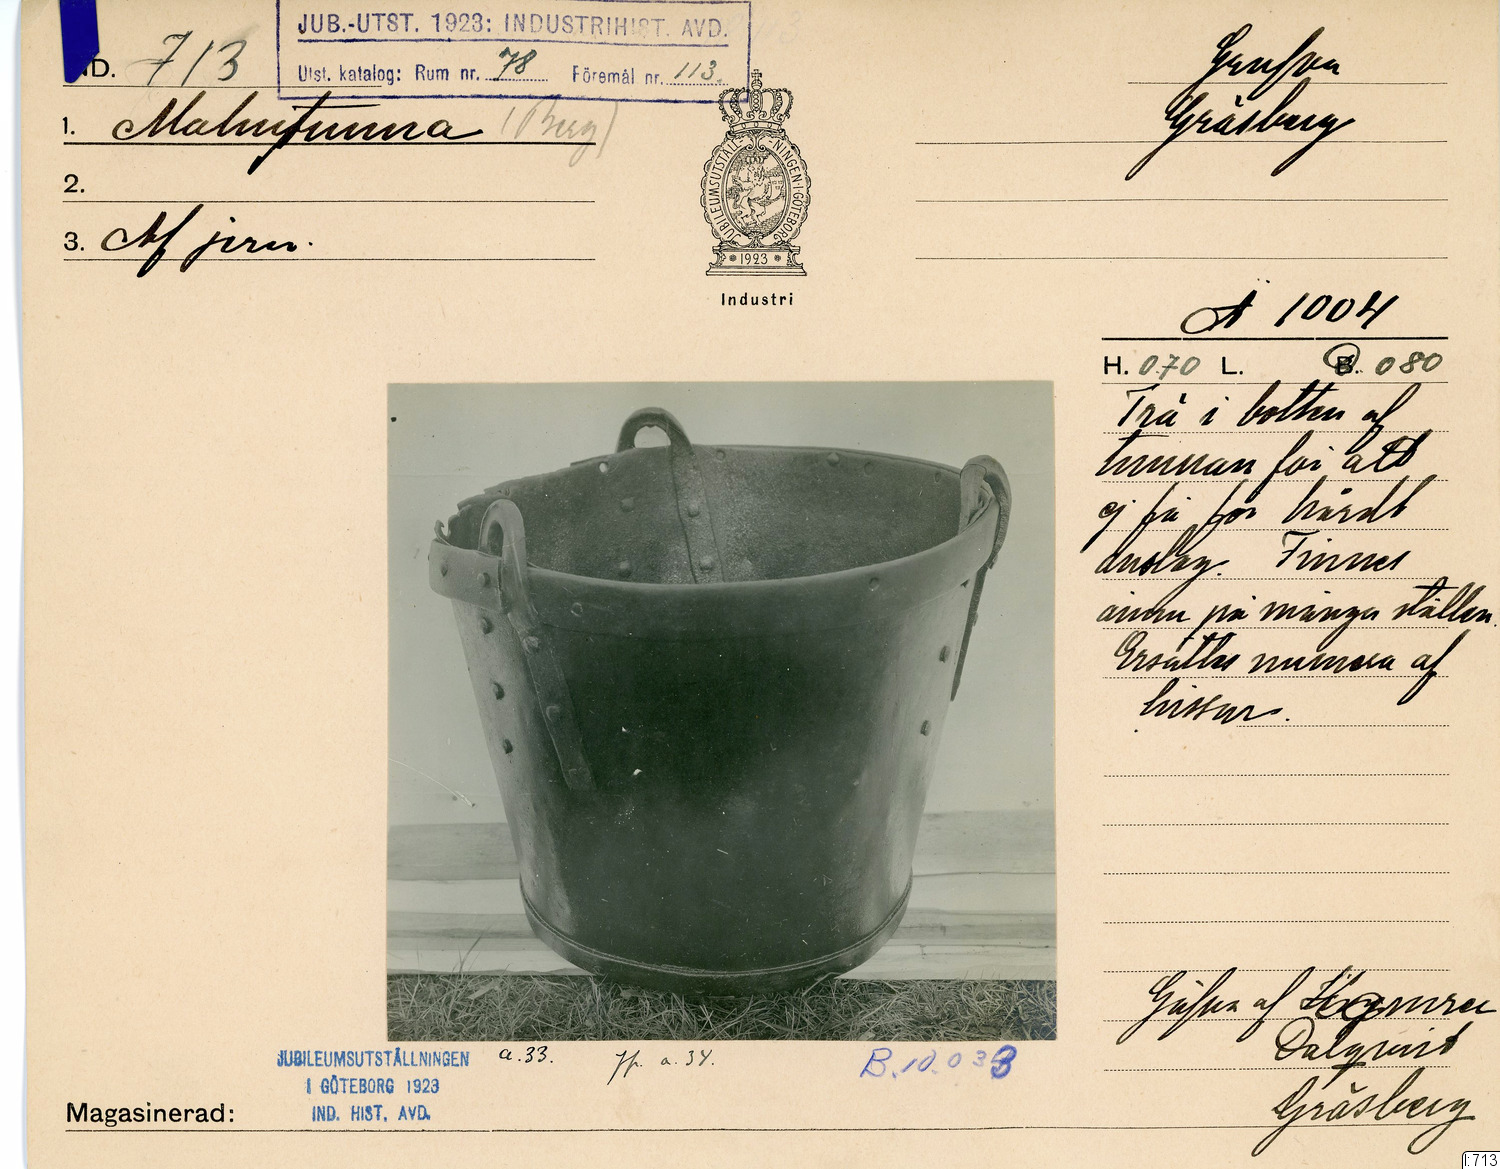 JUB.-UTST. 1923: INDUSTRIHIST. AVD.
Utst. katalog: Rum nr. 78 Föremål nr. 113.
IND. 713
1. Malmtunna (Berg)
2.
3. Af jern.
JUBILEUMSUTSTÄLLNINGEN I GÖTEBORG
1923
Industri
Gräsberg
A 1004
H. 070 L. B. 080
Trä i botten af
tunnan för att
ej få för hårdt
anslag. Finnes
ännu på många ställen.
Ersättes numera af
hissar.
Gåfva af
Dalqvist
Gräsberg
a.33. Jfr. a.34. B.10.033
JUBILEUMSUTSTÄLLNINGEN
I GÖTEBORG 1923
IND. HIST. AVD.
Magasinerad:
I:713